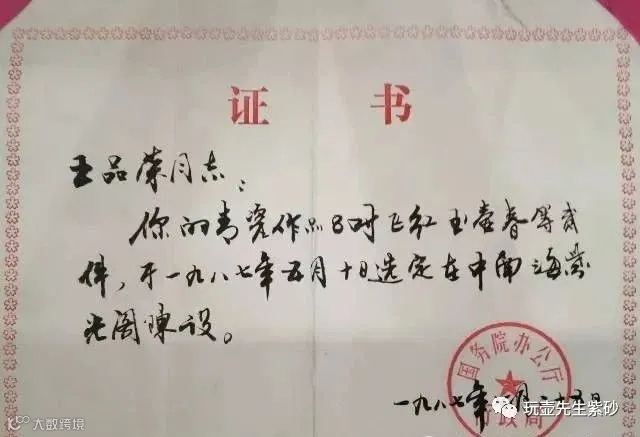 证 书
王品荣同志：
你的青瓷作品8吋飞红玉壶春等贰
件，于一九八七年五月十日选定在中南海紫
光阁陈设。
国务院办公厅
政局
一九八七年 月二十五日
大数跨境
玩壶先生紫砂